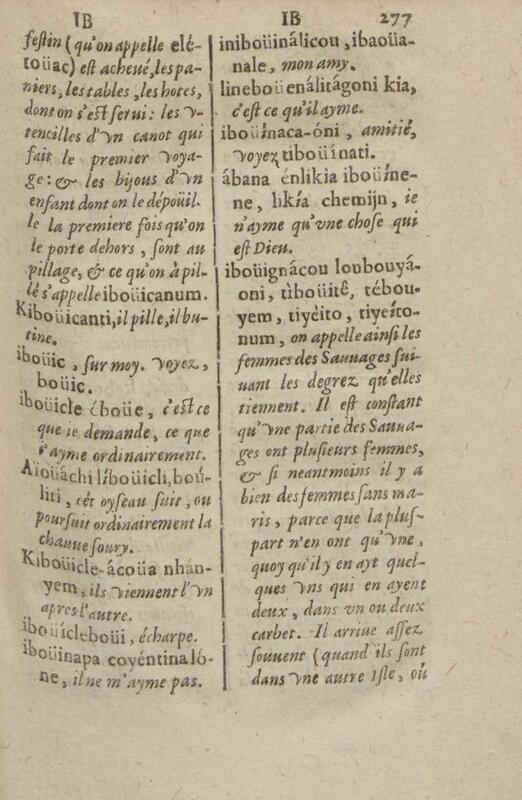 IB
IB 277
festin (qu'on appelle elé-
toüac) est acheué, les pa-
niers, les tables, les hotes,
dont on s'est serui: les v-
tencilles d'vn canot qui
fait le premier voya-
ge: & les bijous d'vn
enfant dont on le dépoüil-
le la premiere fois qu'on
le porte dehors, sont au
pillage, & ce qu'on à pil-
lé s'appelle iboüicanum.
Kiboüicanti, il pille, il bu-
tine.
iboüic, sur moy. voyez,
boüic.
iboüicle éboüe, c'est ce
que ie demande, ce que
i'ayme ordinairement.
Aïoüáchi líboüicli, boú-
liti, cét oyseau suit, ou
poursuit ordinairement la
chauue soury.
Kiboüicle-ácoüa nhán-
yem, ils viennent l'vn
apres l'autre.
iboüícleboüi, écharpe.
iboüinapa coyéntina ló-
ne, il ne m'ayme pas.
iniboüinálicou, ibaoüa-
nale, mon amy.
lineboüenálitágoni kia,
c'est ce qu'il ayme.
iboüínaca-óni, amitié,
voyez tiboüínati.
ábana énlikia iboüíne-
ne, likía chemijn, ie
n'ayme qu'vne chose qui
est Dieu.
iboüignácou loubouyá-
oni, tìboüitê, tébou-
yem, tiyéìto, tiyeíto-
num, on appelle ainsi les
femmes des Sauuages sui-
uant les degrez qu'elles
tiennent. Il est constant
qu'vne partie des Sauua-
ges ont plusieurs femmes,
& si neantmoins il y a
bien des femmes sans ma-
ris, parce que la plus-
part n'en ont qu'vne,
quoy qu'il y en ayt quel-
ques vns qui en ayent
deux, dans vn ou deux
carbet. Il arriue assez
souuent (quand ils sont
dans vne autre Isle, où